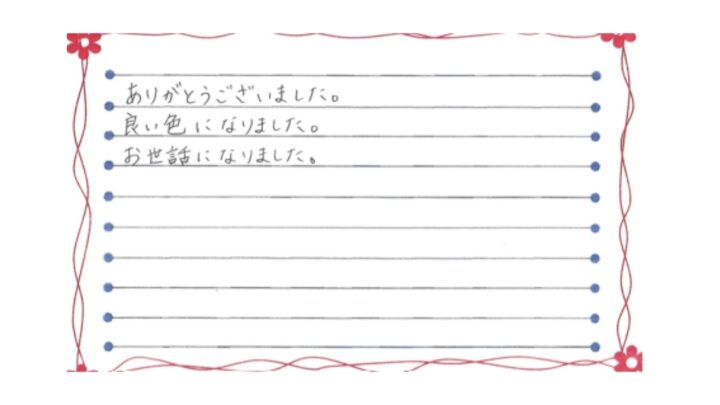 ありがとうございました。
良い色になりました。
お世話になりました。